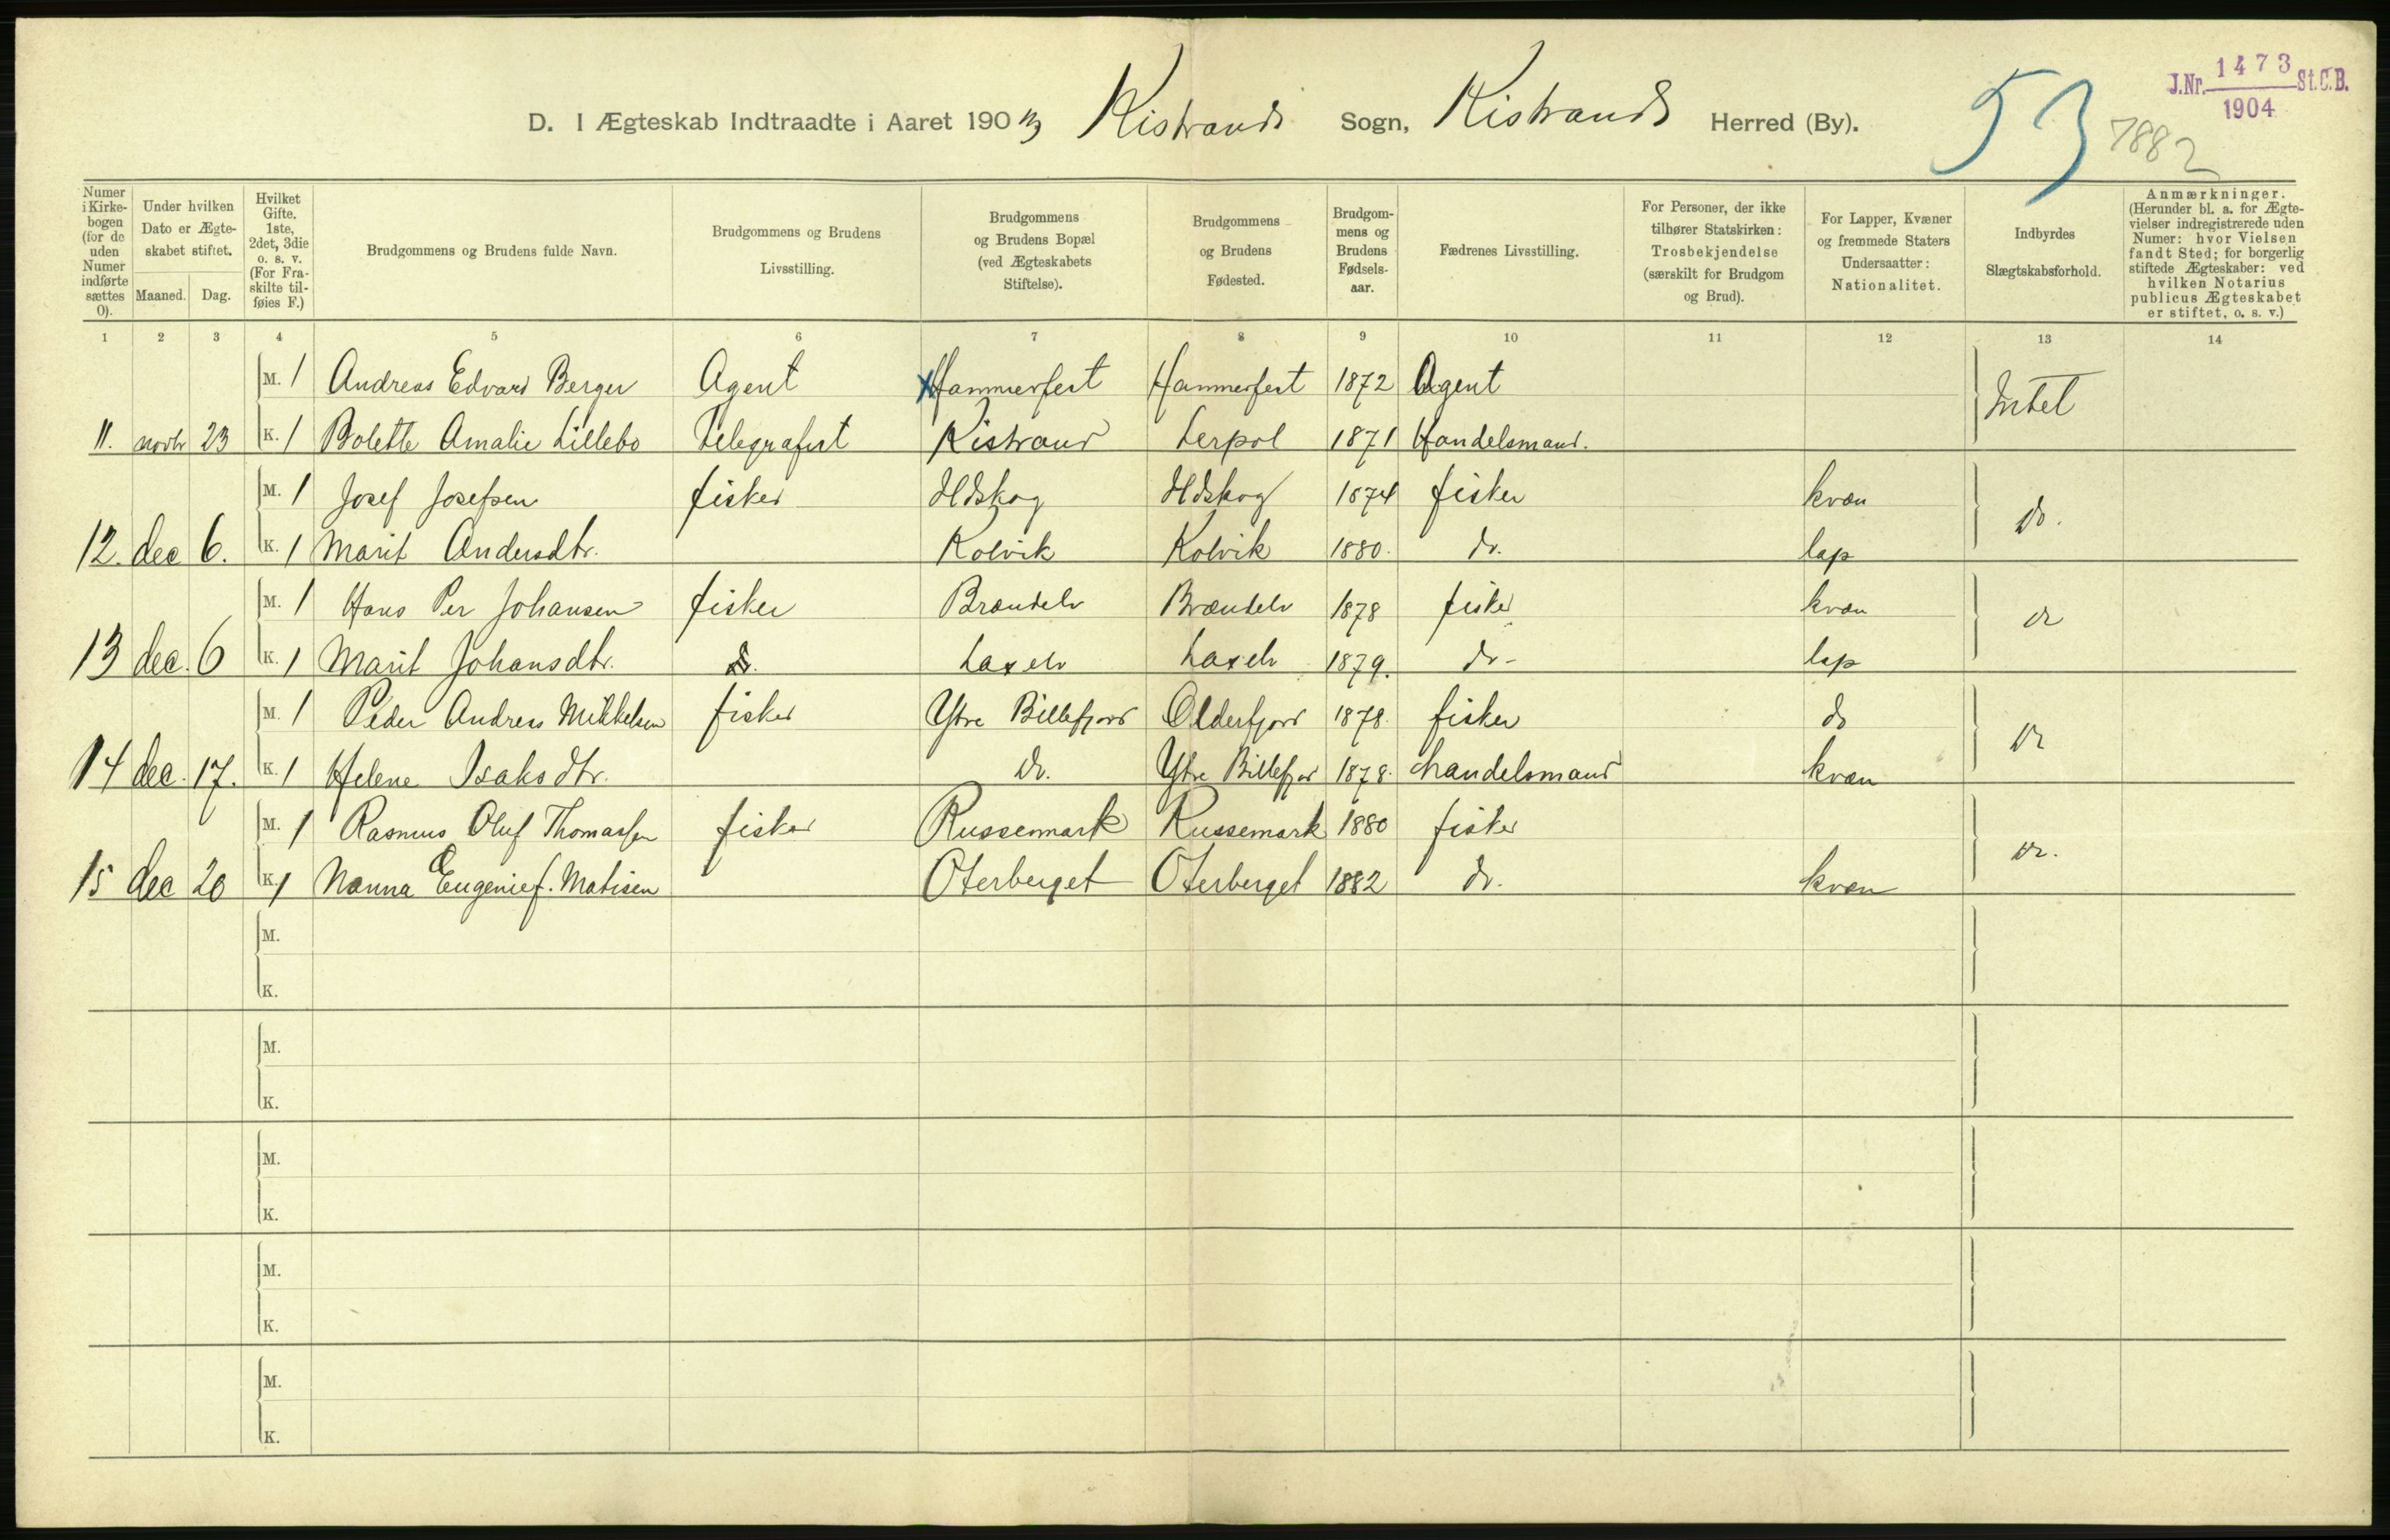 J.Nr. 1473 St.C.B.
1904
D. I Ægteskab Indtraadte i Aaret 1903 Kistrands Sogn, Kistrands Herred (By).
53
7882
Numer i Kirkebogen (for de uden Numer indførte sættes 0).
Under hvilken Dato er Ægteskabet stiftet.
Maaned. Dag.
Hvilket Gifte. 1ste, 2det, 3die o. s. v. (For Fraskilte tilføies F.)
Brudgommens og Brudens fulde Navn.
Brudgommens og Brudens Livsstilling.
Brudgommens og Brudens Bopæl (ved Ægteskabets Stiftelse).
Brudgommens og Brudens Fødested.
Brudgommens og Brudens Fødselsaar.
Fædrenes Livsstilling.
For Personer, der ikke tilhører Statskirken: Trosbekjendelse (særskilt for Brudgom og Brud).
For Lapper, Kvæner og fremmede Staters Undersaatter: Nationalitet.
Indbyrdes Slægtskabsforhold.
Anmærkninger. (Herunder bl. a. for Ægtevielser indregistrerede uden Numer: hvor Vielsen fandt Sted; for borgerlig stiftede Ægteskaber: ved hvilken Notarius publicus Ægteskabet er stiftet, o. s. v.)
1 2 3 4 5 6 7 8 9 10 11 12 13 14
M. 1 Andreas Edvard Berger Agent Hammerfest Hammerfest 1872 Agent
Intet
11. novbr 23 K. 1 Bolette Amalie Lillebo Telegrafist Kistrand Lerpol 1871 Handelsmand.
M. 1 Josef Josefsen fisker Ildskog Ildskog 1874 fisker kvæn
do.
12. dec 6. K. 1 Marit Andersdtr. Kolvik Kolvik 1880. do. lap
M. 1 Hans Per Johansen fisker Brændelv Brændelv 1878 fisker kvæn
do
13 dec. 6 K. 1 Marit Johansdtr. Laxelv Laxelv 1879. do - lap
M. 1 Peder Andreas Mikkelsen fisker Ytre Billefjord Olderfjord 1878. fisker do
do
14 dec. 17. K. 1 Helene Isaksdtr. do. Ytre Billefjor 1878. handelsmand kvæn
M. 1 Rasmus Oluf Thomassen fisker Russemark Russemark 1880 fisker
do.
15 dec 20 K. 1 Nanna Eugenie f. Matisen Oterberget Oterberget 1882 do. kvæn
M.
K.
M.
K.
M.
K.
M.
K.
M.
K.